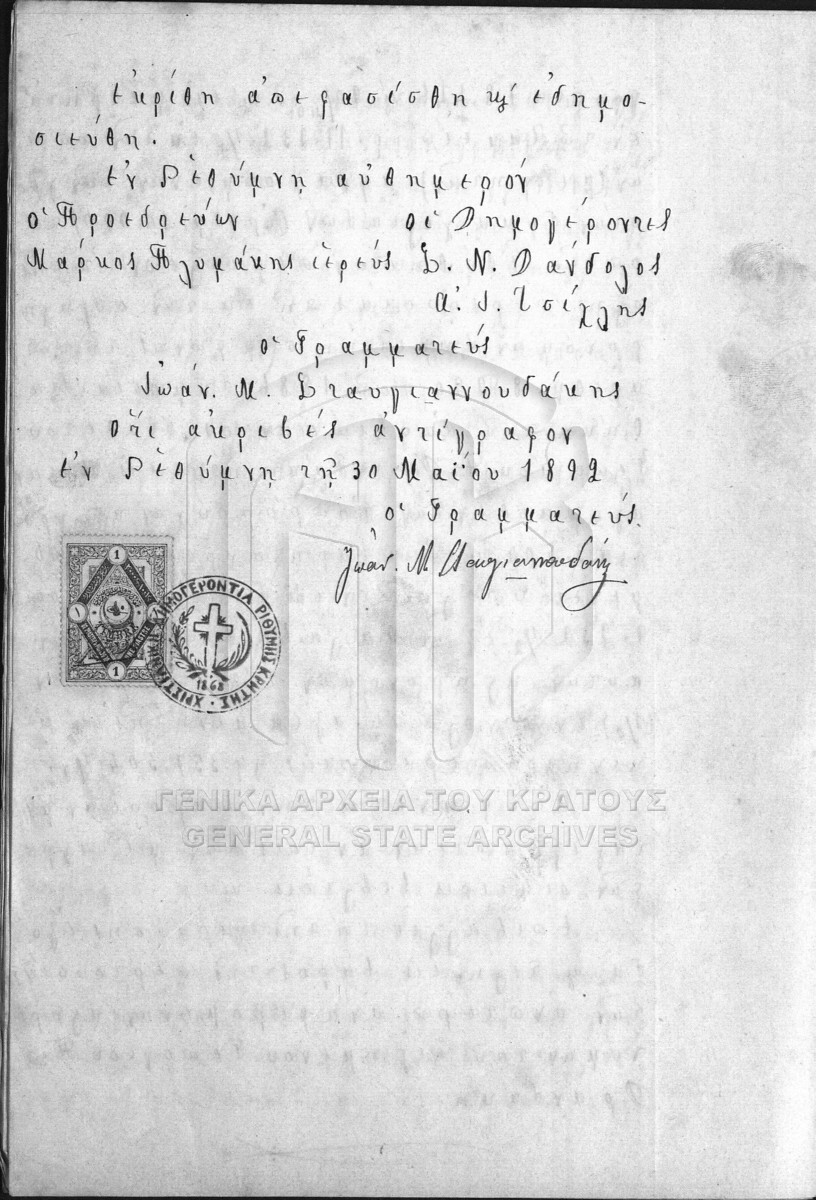 Ἐκρίθη ἀπεφασίσθη καὶ ἐδημο-
σιεύθη.
Ἐν Ῥεθύμνῃ αὐθημερόν
ὁ Προεδρεύων οἱ Δημογέροντες
Μάρκος Πλυμάκης ἱερεύς Σ. Ν. Δάνδολος
Α. Ι. Τσίχλης
ὁ Γραμματεύς
Ἰωάν. Μ. Σταυγιαννουδάκης
ὅτι ἀκριβές ἀντίγραφον
ἐν Ῥεθύμνῃ τῇ 30 Μαΐου 1892
ὁ Γραμματεύς
Ἰωάν. Μ. Σταυγιαννουδάκης
1
1 1
1
ΧΡΙΣΤΙΑΝΙΚΗ ΔΗΜΟΓΕΡΟΝΤΙΑ ΡΙΘΥΜΝΗΣ ΚΡΗΤΗΣ
1868
ΓΕΝΙΚΑ ΑΡΧΕΙΑ ΤΟΥ ΚΡΑΤΟΥΣ
GENERAL STATE ARCHIVES